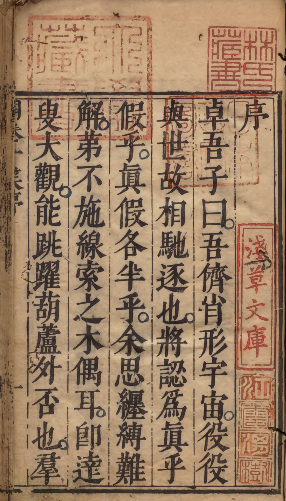 序
卓吾子曰吾儕肖形宇宙役役
與世故相馳逐也將認爲眞乎
假乎眞假各半乎余思纏縛難
解弟不施線索之木偶耳卽達
叟大觀能跳躍葫蘆外否也羣
林氏
藏書
淺草文庫